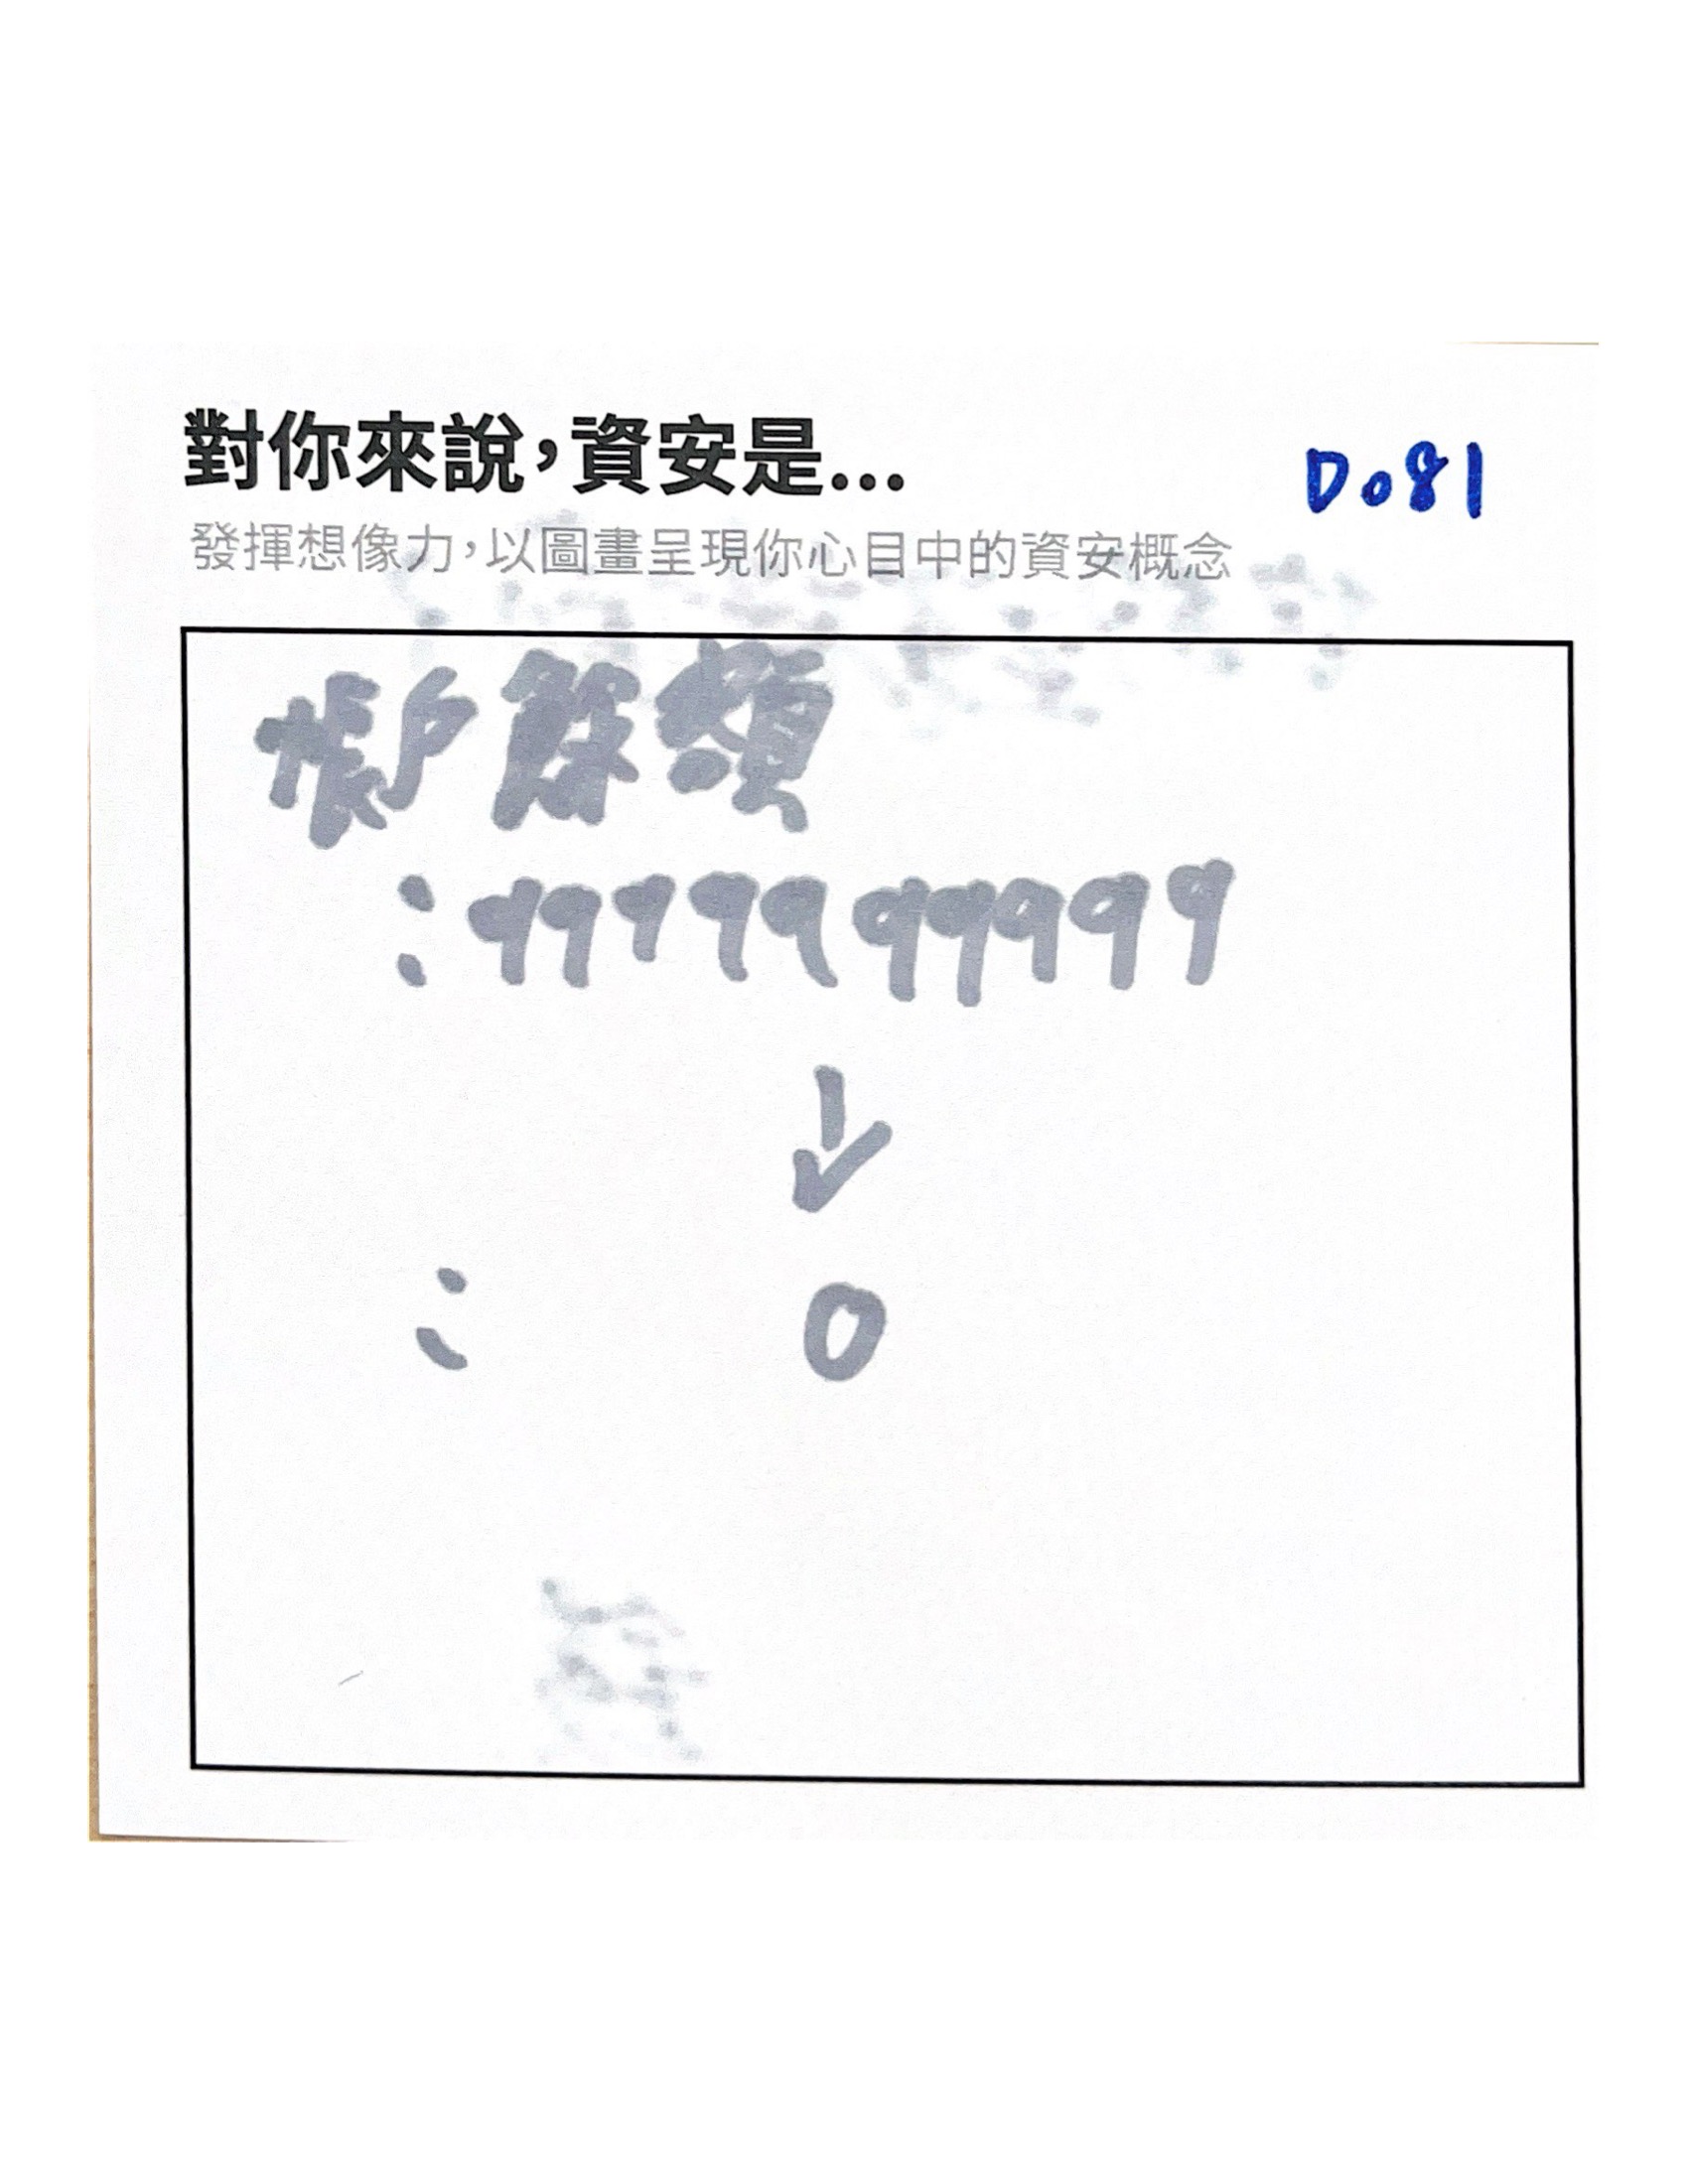 對你來說，資安是...
D081
發揮想像力，以圖畫呈現你心目中的資安概念
帳戶餘額
：9999999999
↓
： 0